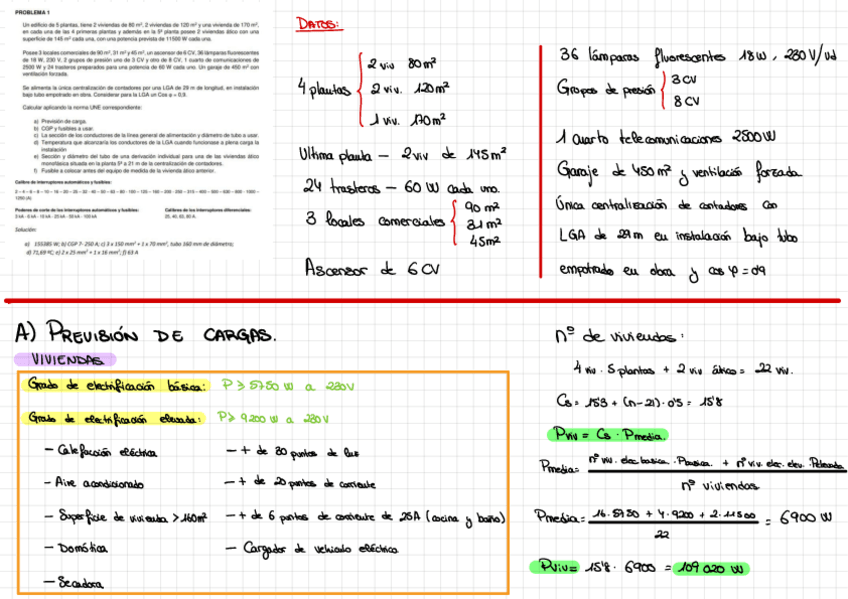 PROBLEMA 1
Un edificio de 5 plantas, tiene 2 viviendas de 80 m², 2 viviendas de 120 m² y una vivienda de 170 m²,
en cada una de las 4 primeras plantas y además en la 5ª planta posee 2 viviendas ático con una
superficie de 145 m² cada una, con una potencia prevista de 11500 W cada una.
Posee 3 locales comerciales de 90 m², 31 m² y 45 m², un ascensor de 6 CV, 36 lámparas fluorescentes
de 18 W, 230 V, 2 grupos de presión uno de 3 CV y otro de 8 CV, 1 cuarto de comunicaciones de
2500 W y 24 trasteros preparados para una potencia de 60 W cada uno. Un garaje de 450 m² con
ventilación forzada.
Se alimenta la única centralización de contadores por una LGA de 29 m de longitud, en instalación
bajo tubo empotrado en obra. Considerar para la LGA un Cos φ = 0,9.
Calcular aplicando la norma UNE correspondiente:
a) Previsión de carga.
b) CGP y fusibles a usar.
c) La sección de los conductores de la línea general de alimentación y diámetro de tubo a usar.
d) Temperatura que alcanzaría los conductores de la LGA cuando funcionase a plena carga la
instalación
e) Sección y diámetro del tubo de una derivación individual para una de las viviendas ático
monofásica situada en la planta 5ª a 21 m de la centralización de contadores.
f) Fusible a colocar antes del equipo de medida de la vivienda ático anterior.
Calibre de interruptores automáticos y fusibles:
Poderes de corte de los interruptores automáticos y fusibles:
Calibres de los interruptores diferenciales:
3 kA - 6 kA - 10 kA - 25 kA - 50 kA - 100 kA
25, 40, 63, 80 A.
Solución:
a) 155385 W; b) CGP 7- 250 A; c) 3 x 150 mm² + 1 x 70 mm², tubo 160 mm de diámetro;
d) 71,69 ºC; e) 2 x 25 mm² + 1 x 16 mm²; f) 63 A
DATOS:
4 plantas
2 viv 80m²
2 viv. 120m²
1 viv. 170m²
Ultima planta — 2 viv de 145 m²
24 trasteros — 60 W cada uno.
3 locales comerciales
90 m²
31 m²
45m²
Ascensor de 6 CV
36 lámparas fluorescentes 18W, 230V/ud
Grupos de presión
3 CV
8 CV
1 cuarto telecomunicaciones 2500W
Garaje de 450 m² y ventilación forzada
Única centralización de contadores con
LGA de 29 m en instalación bajo tubo
empotrado en obra y cos φ = 0'9
A) PREVISIÓN DE CARGAS.
VIVIENDAS
Grado de electrificación básica: P ≥ 5750 W a 230V
Grado de electrificación elevada: P≥ 9200 W a 230V
— Calefacción eléctrica
— Aire acondicionado
— Superficie de vivienda > 160m²
— Domótica
— Secadora
— + de 30 puntos de luz
— + de 20 puntos de corriente
— + de 6 puntos de corriente de 25A (cocina y baño)
— Cargador de vehículo eléctrico
nº de viviendas:
4 viv · 5 plantas + 2 viv ático = 22 viv.
Cs = 15'3 + (n-21)·0'5 = 15'8
Pviv = Cs · Pmedia.
Pmedia= nº viv. elec básica · Pbásica. + nº viv elec. elev. · Pelevada
nº viviendas
Pmedia= 16·5750 + 4·9200 + 2·11500 = 6900 W
22
Pviv= 15'8 · 6900 = 109 020 W